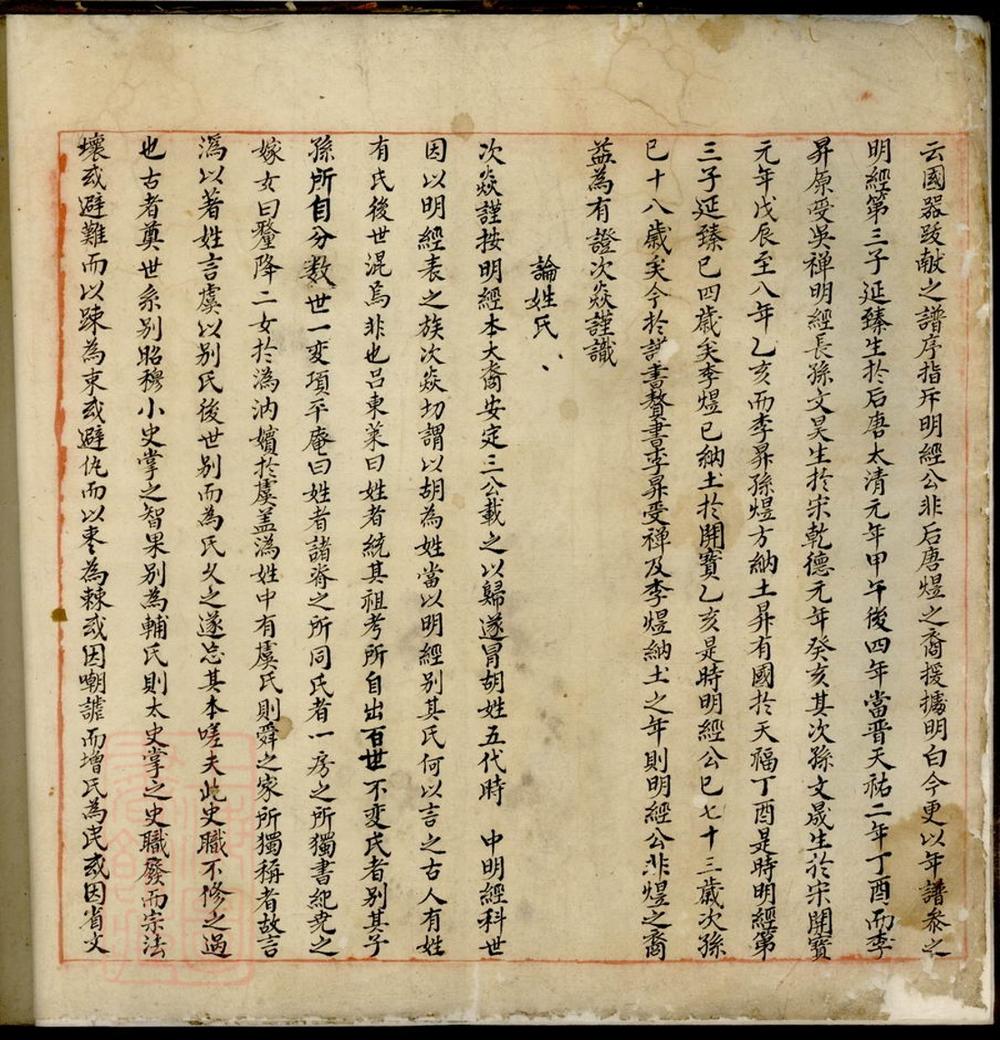 云國器跋献之譜序指斥明經公非后唐煜之裔援據明白今更以年譜參之
明經第三子延臻生於后唐太清元年甲午後四年當晋天祐二年丁酉而李
昇原受吳禅明經長孫文昊生於宋乾德元年癸亥其次孫文晟生於宋開寶
元年戊辰至八年乙亥而李昇孫煜方納土昇有國於天福丁酉是時明經第
三子延臻已四歲矣李煜已納土於開寶乙亥是時明經公已七十三歲次孫
已十八歲矣今於譜書贅書李昇受禅及李煜納土之年則明經公非煜之裔
益為有證次焱謹識
論姓氏
次焱謹按明經本大裔安定三公載之以歸遂冒胡姓五代時 中明經科世
因以明經表之族次焱切謂以胡為姓當以明經别其氏何以言之古人有姓
有氏後世混為非也吕東萊曰姓者統其祖考所自出百世不变氏者别其子
孫所自分数世一变項平庵曰姓者諸裔之所同氏者一房之所獨書紀尭之
嫁女曰釐降二女於溈汭嬪於虞盖溈姓中有虞氏則舜之家所獨稱者故言
溈以著姓言虞以别氏後世别而為氏久之遂忘其本嗟夫此史職不修之過
也古者奠世系别昭穆小史掌之智果别為輔氏則太史掌之史職廢而宗法
壞或避難而以踈為束或避仇而以枣為棘或因嘲謔而增氏為民或因省文